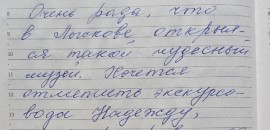 Очень рада, что
в Лоскове открыл-
ся такой чудесный
музей. Хочется
отметить экскурсо-
вода Надежду,